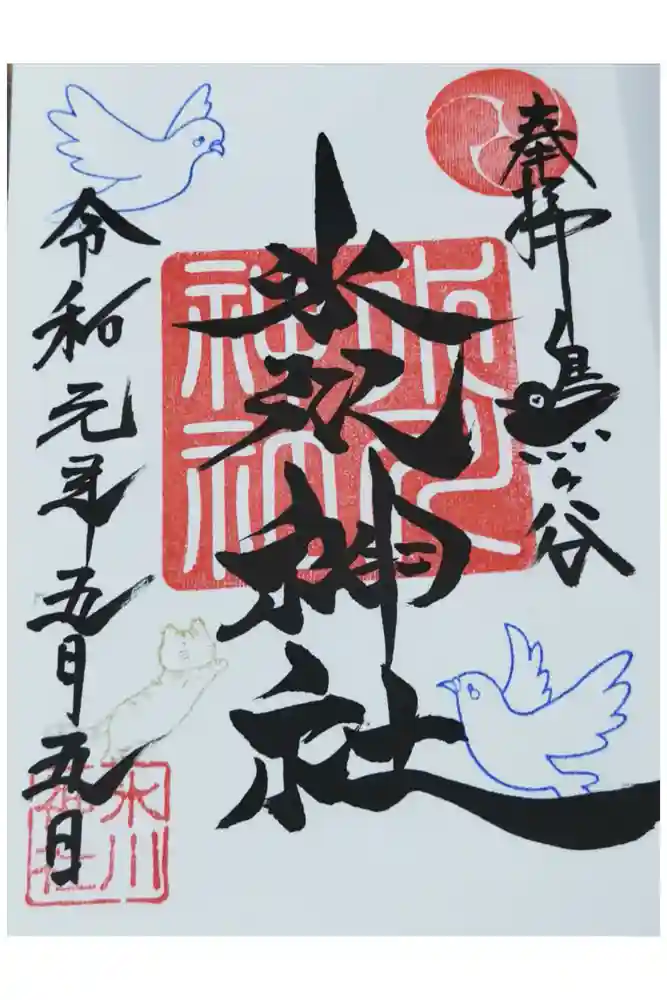 奉拝 鳩ヶ谷
氷川神社
氷川神社
令和元年五月五日
氷川神社